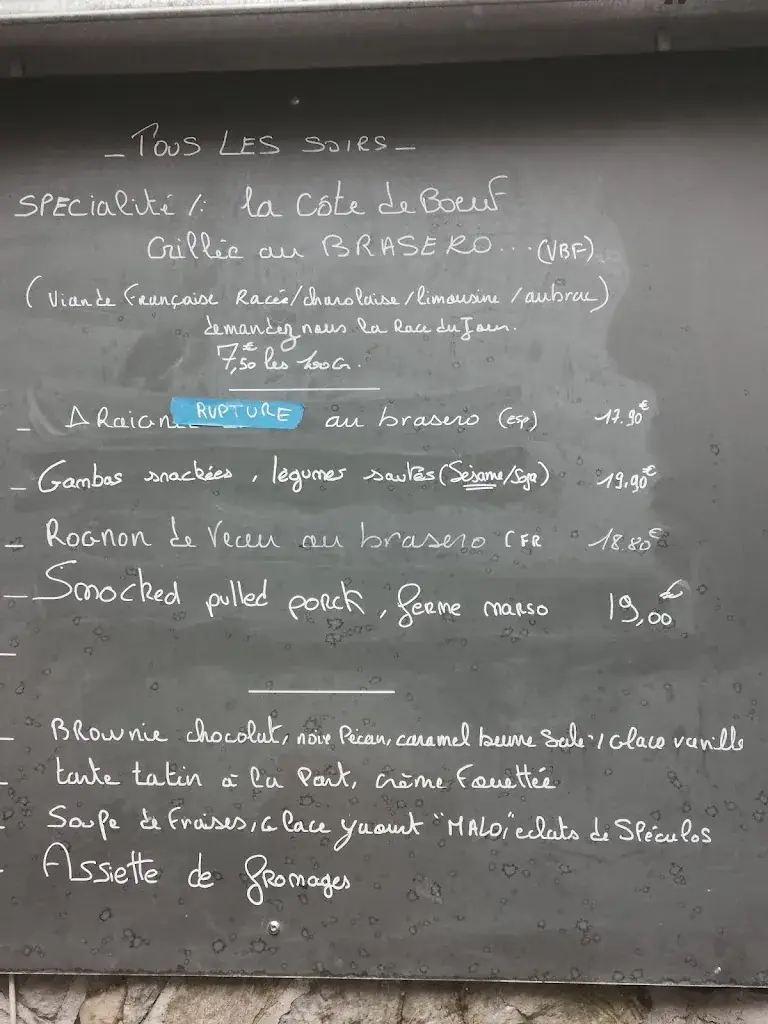 _ TOUS LES SOIRS _
SPECIALITÉ /: la Côte de Boeuf
Grillée au BRASERO... (VBF)
(Viande Française Racée/charolaise/limousine/aubrac)
demandez nous la Race du Jour.
7,50€ les 100G.
_ ARaign RUPTURE au brasero (esp) 17.90€
_ Gambas snackées, légumes sautés (Sésame/Soja) 19,90€
_ Rognon de Veau au brasero (FR 18.80€
_ Smocked pulled porck, ferme marso 19,00€
_
_ BROwnie chocolat, noix Pécan, caramel beurre Salé / Glace vanille
_ tarte tatin à la Part, crème Fouettée
_ Soupe de Fraises, Glace yaourt "MALO," eclats de Spéculos
_ Assiette de fromages